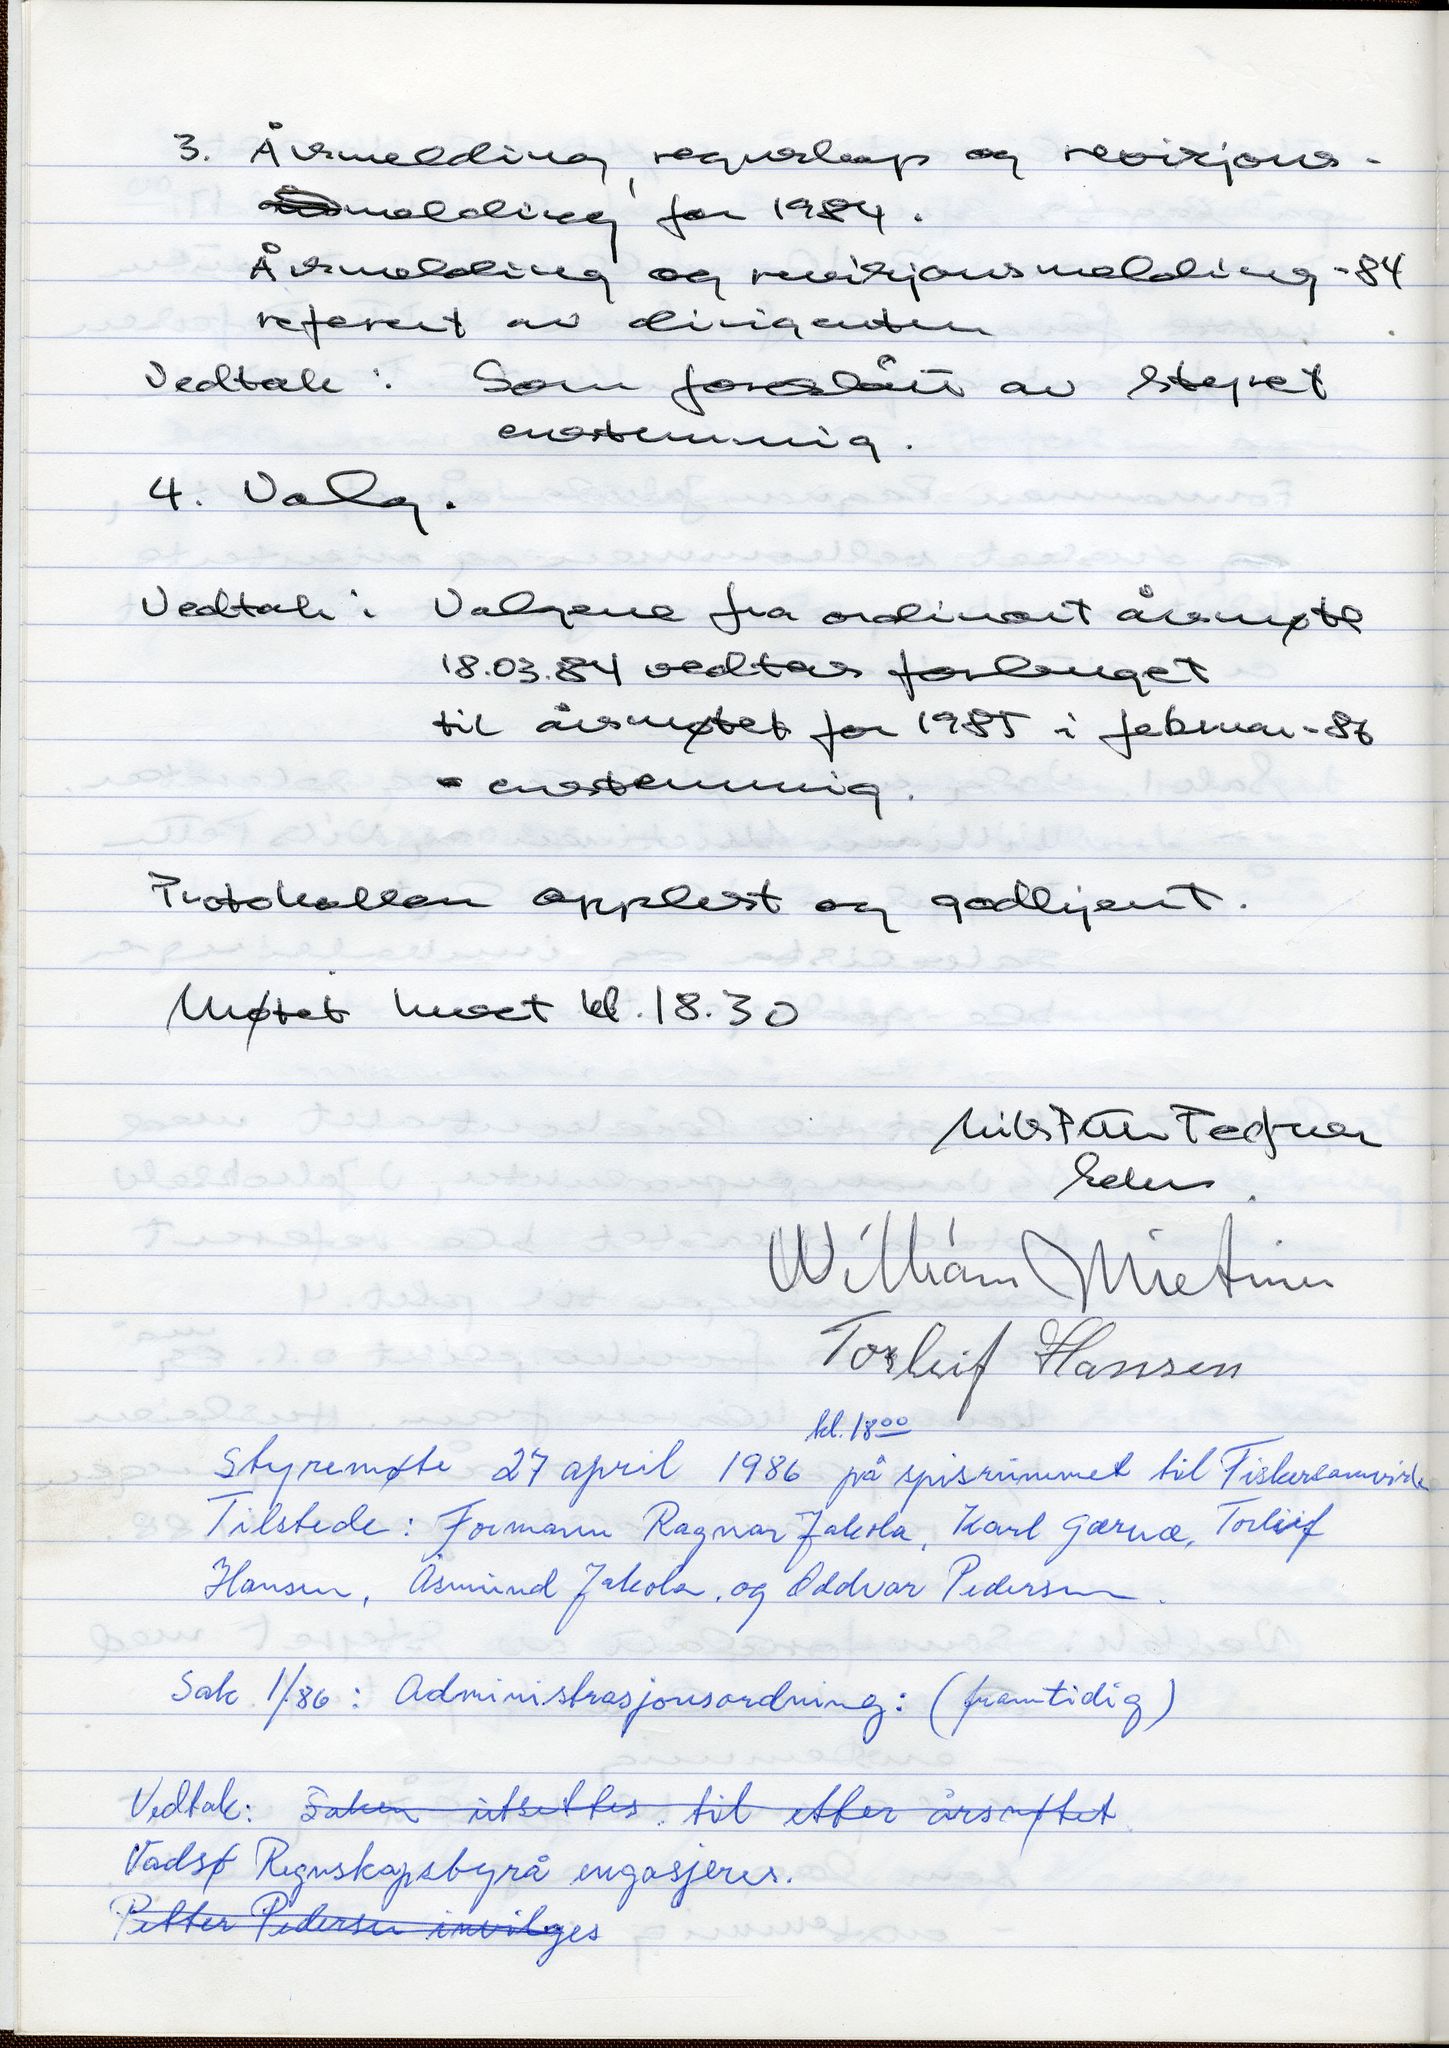 3. Årsmelding, regnskap og revisjons-
melding for 1984.
Årsmelding og revisjonsmelding -84
referert av dirigenten
Vedtak: Som foreslått av styret
enstemmig.
4. Valg.
Vedtak: Valgene fra ordinært årsmøte
18.03.84 vedtas forlenget
til årsmøtet for 1985 i februar -86
- enstemmig.
Protokollen opplest og godkjent.
Møtet hevet kl. 18.30
Nils Petter Pedersen
sekr.
William Mietinen
Torleif Hansen
kl. 18⁰⁰
Styremøte 27 april 1986 på spisrummet til Fiskersamvirke
Tilstede: Formann Ragnar Jakola, Karl Gærnæ, Torleif
Hansen, Åsmund Jakola, og Oddvar Pedersen.
Sak 1/86: Administrasjonsordning: (framtidig)
Vedtak: Saken utsettes til etter årsmøtet
Vadsø Regnskapsbyrå engasjeres.
Petter Pedersen innvilges